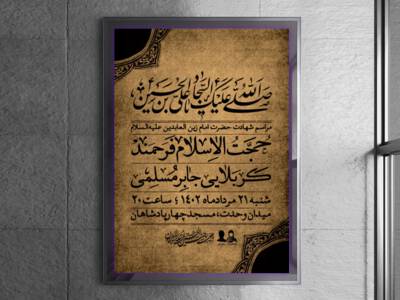 صلی الله علیک أیها السجاد یا علی بن الحسین
مراسم شهادت حضرت امام زین العابدین علیه‌السلام
حجت الاسلام فرحمند
کربلایی جابر مسلمی
شنبه ۲۱ مرداد ماه ۱۴۰۲ ؛ ساعت ۲۰
میدان وحدت، مسجد چهار پادشاهان